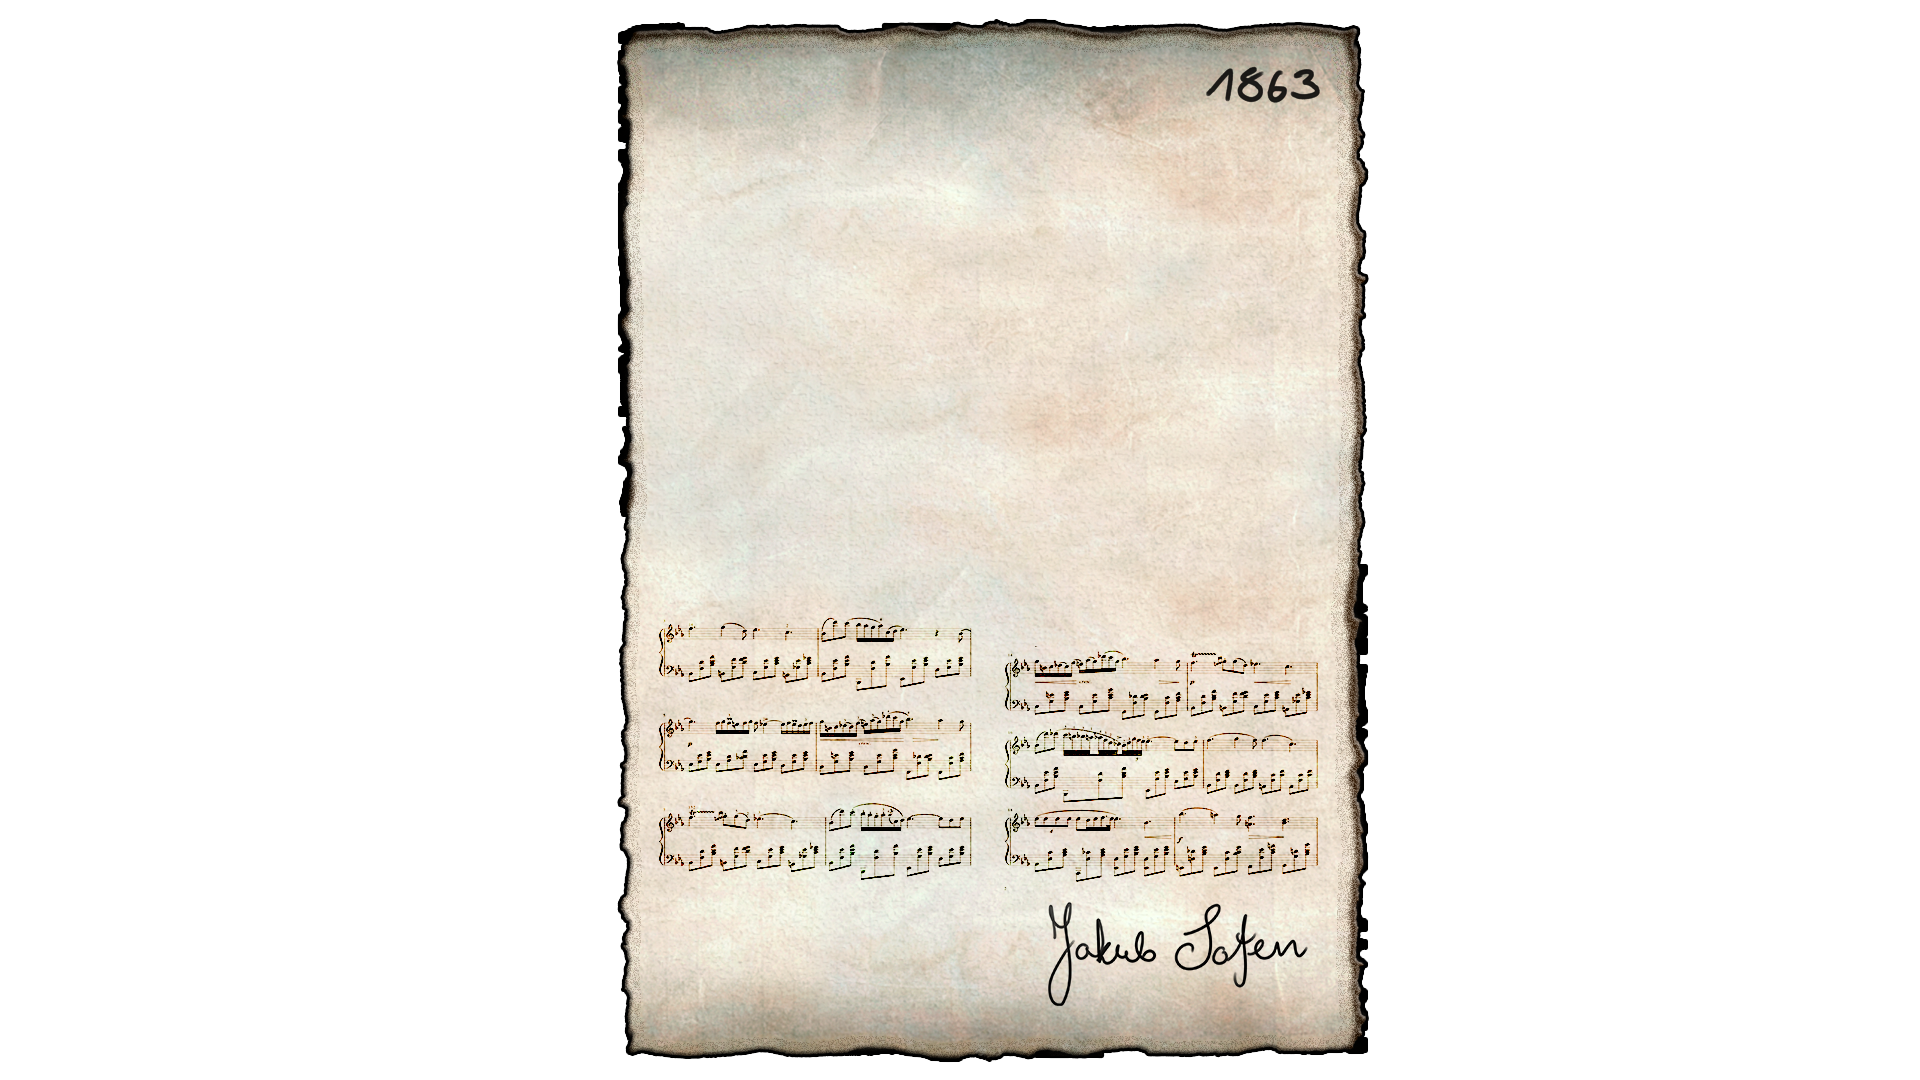 1863
Jakub Safen